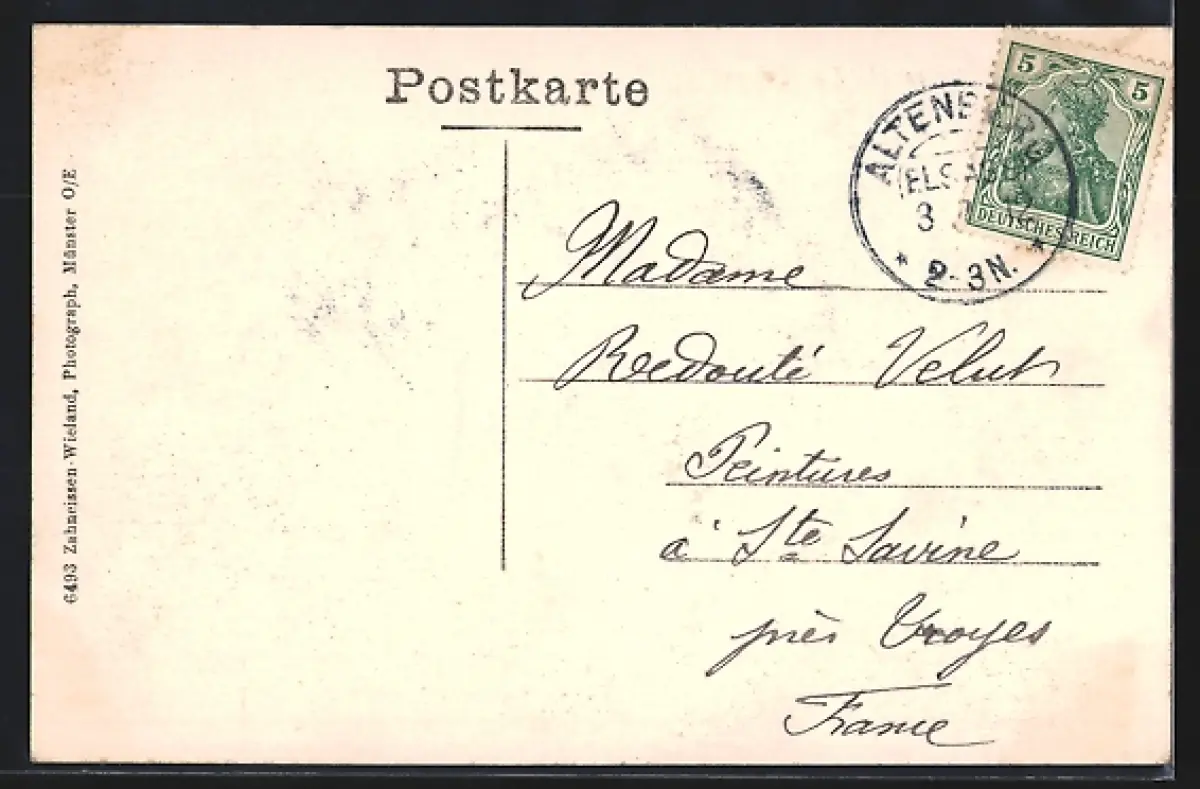 Postkarte
5 5
DEUTSCHES REICH
ALTENBERG
(ELSASS)
3
* 2-3N. *
Madame
Redouté Velut
Peintures
à Ste Savine
près Troyes
France
6493 Zahneissen-Wieland, Photograph, Münster O/E